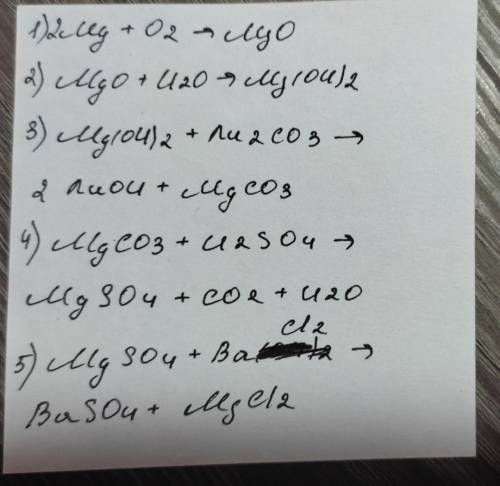 1) 2Mg + O2 → MgO
2) MgO + H2O → Mg(OH)2
3) Mg(OH)2 + Li2CO3 →
2 LiOH + MgCO3
4) MgCO3 + H2SO4 →
MgSO4 + CO2 + H2O
5) MgSO4 + BaCl2 →
BaSO4 + MgCl2